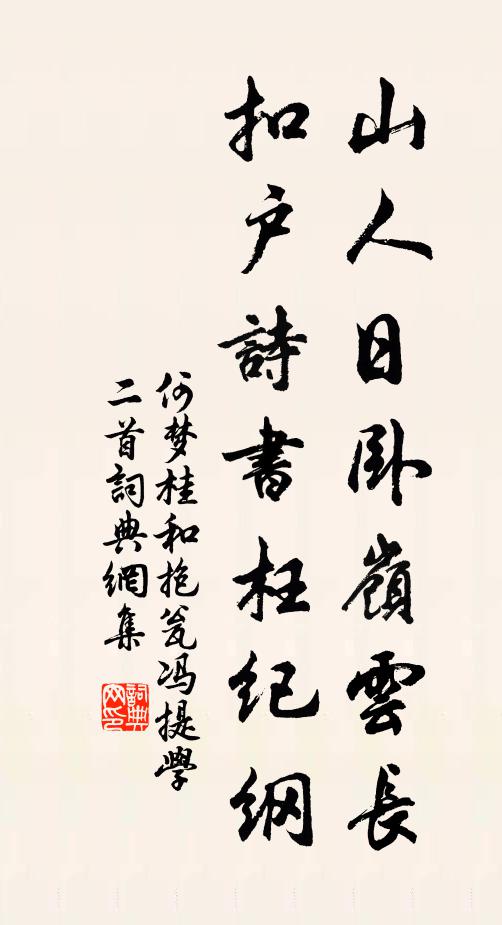 山人日卧嶺雲長
扣户詩書枉纪纲
何梦桂和抱瓮冯提學
二首詞典網集
詞典
网印